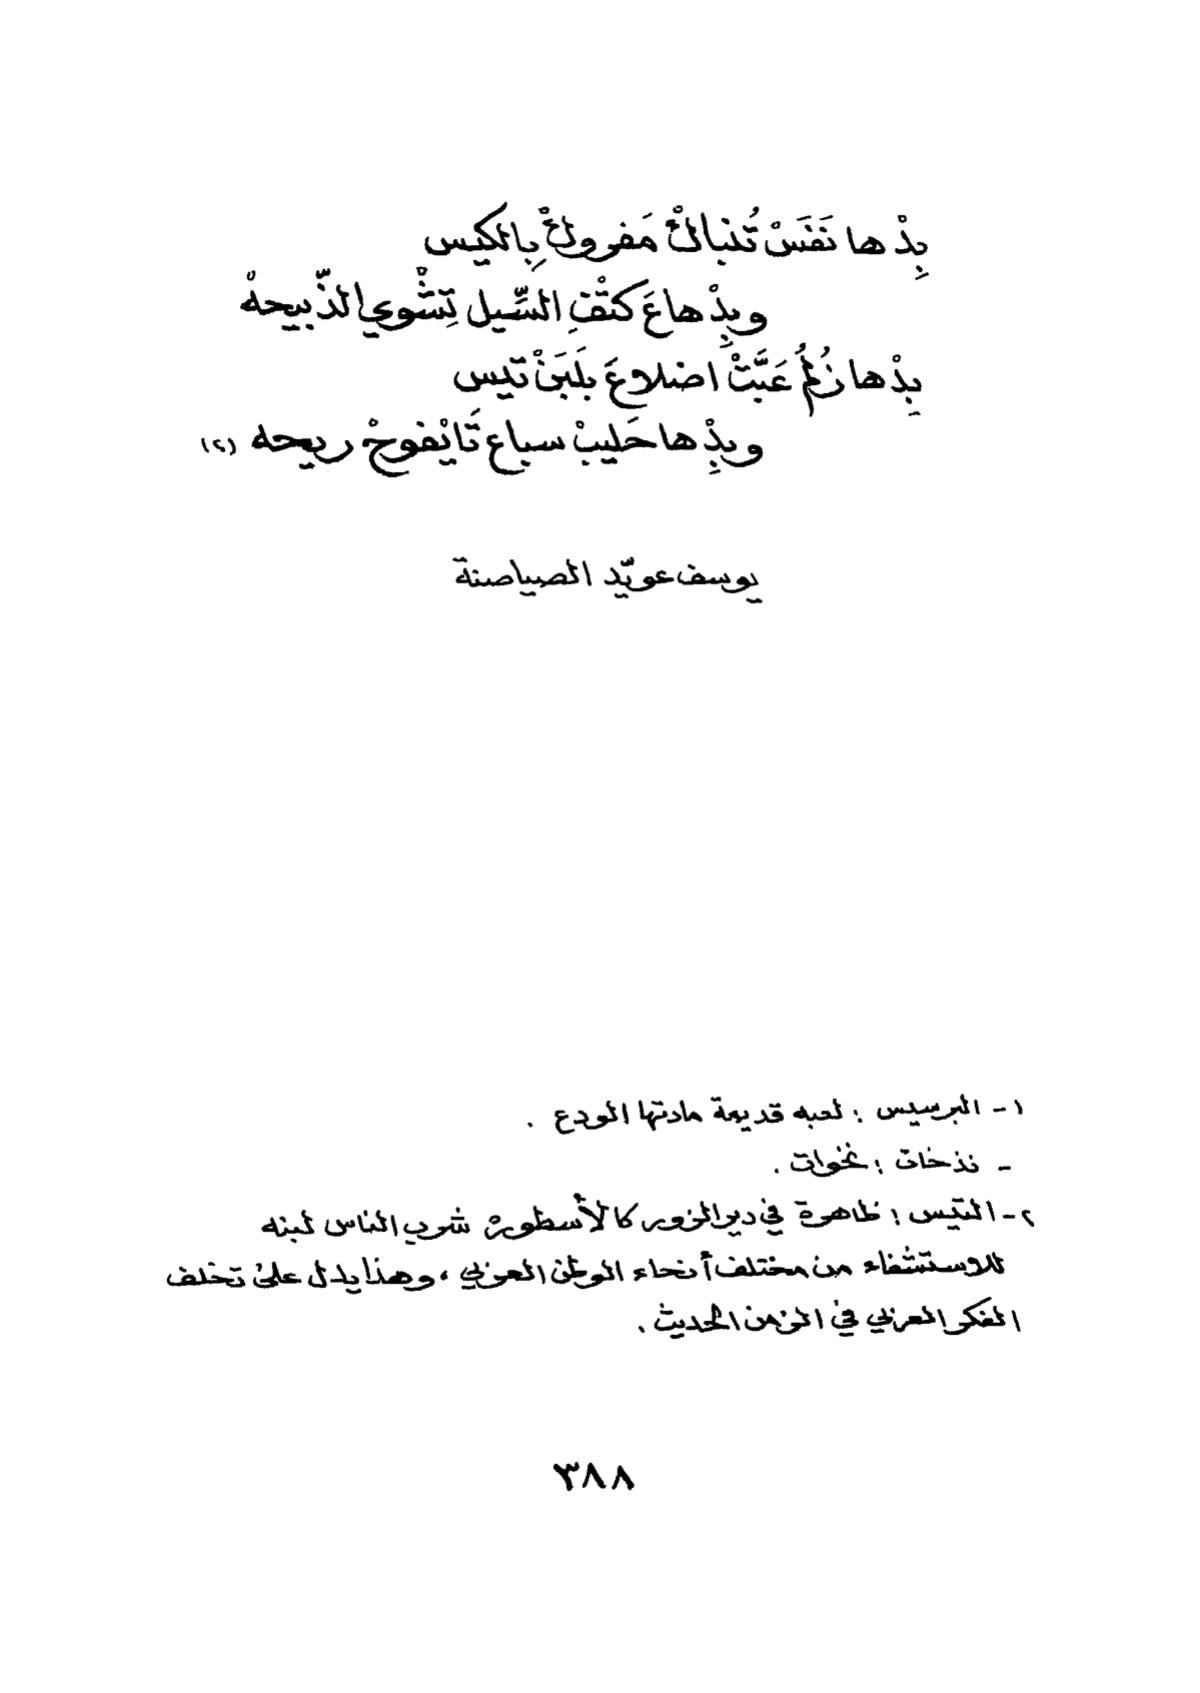 بِدْها نَفَسْ تُنباكْ مَفروكْ بِالكيس
وبِدْها عَ كتْفِ السِّيل تِشْوي الذّبيحهْ
بِدْها زُلُمْ عَبَّتْ اضلاعَ بلَبَنْ تيس
وبِدْها حَليبْ سباع تَايْفوحْ ريحه (٢)
يوسف عويّد الصياصنة
١- البرسيس : لعبه قديمة مادتها الودع .
- نذخات : نخوات .
٢- التيس : ظاهرة في دير الزور كالأسطورة شرب الناس لبنه
للاستشفاء من مختلف أنحاء الوطن العربي ، وهذا يدل على تخلف
الفكر العربي في الزمن الحديث .
٣٨٨